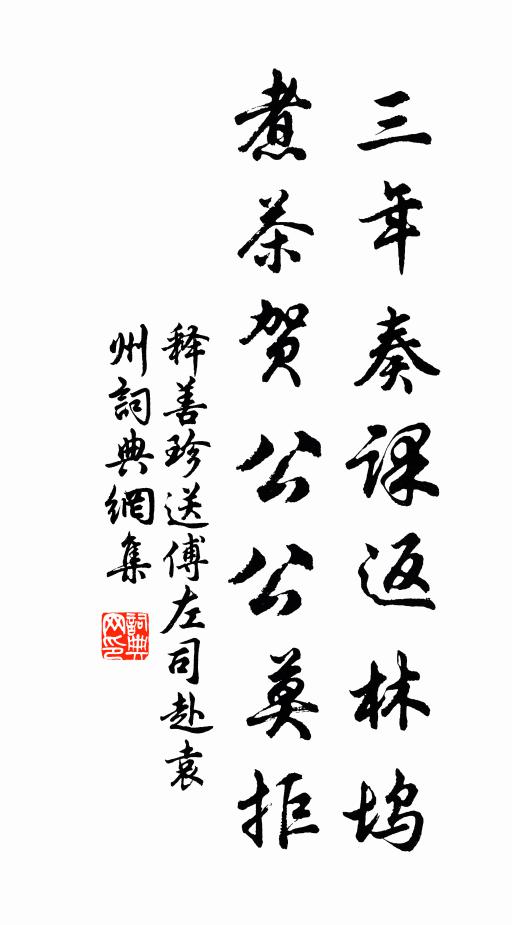 三年奏课返林坞
煮茶贺公公莫拒
释善珍送傅左司赴袁
州詞典網集
詞典网印